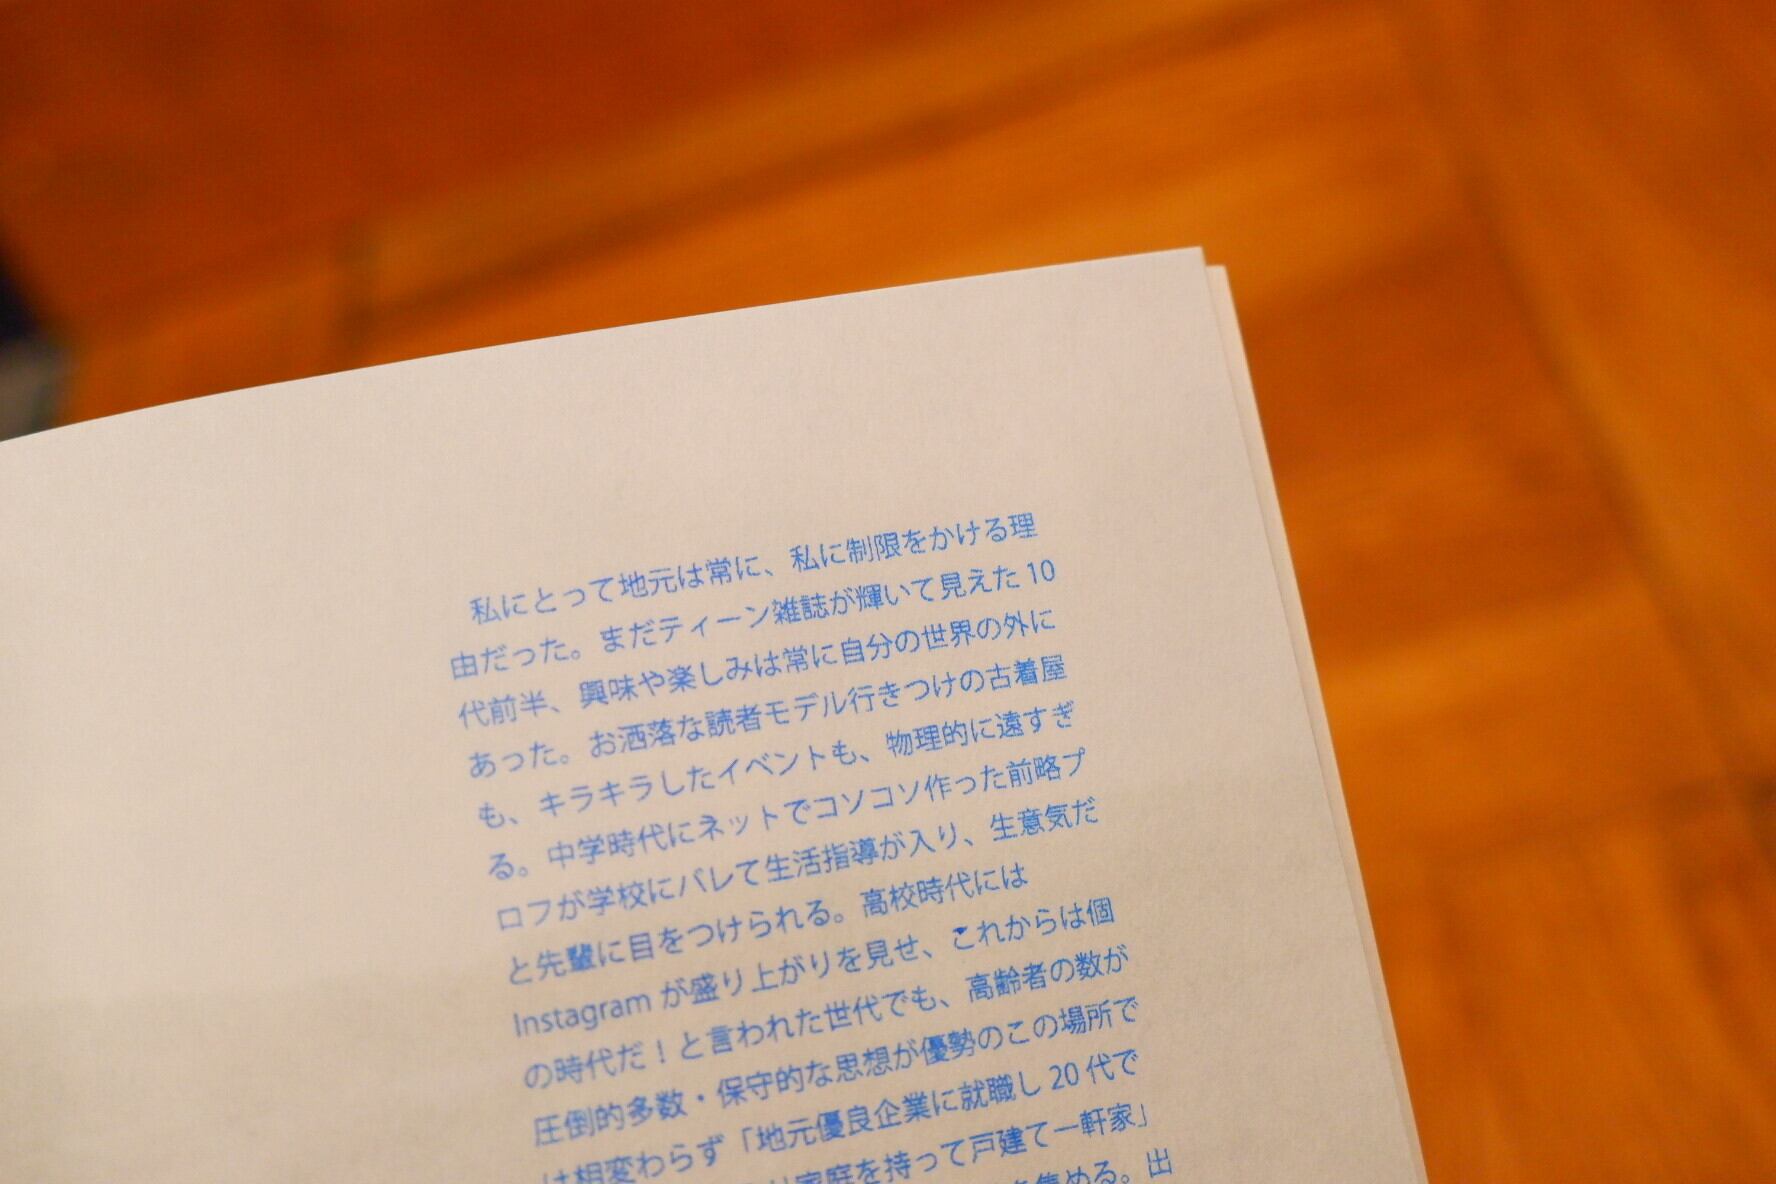 私にとって地元は常に、私に制限をかける理
由だった。まだティーン雑誌が輝いて見えた 10
代前半、興味や楽しみは常に自分の世界の外に
あった。お洒落な読者モデル行きつけの古着屋
も、キラキラしたイベントも、物理的に遠すぎ
る。中学時代にネットでコソコソ作った前略プ
ロフが学校にバレて生活指導が入り、生意気だ
と先輩に目をつけられる。高校時代には
Instagram が盛り上がりを見せ、これからは個
の時代だ！と言われた世代でも、高齢者の数が
圧倒的多数・保守的な思想が優勢のこの場所で
は相変わらず「地元優良企業に就職し 20 代で
家庭を持って戸建て一軒家」
集める。出